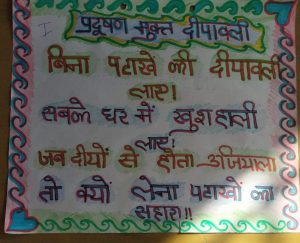 I
प्रदूषण मुक्त दीपावली
बिना पटाखे की दीपावली
लाए।
सबके घर में खुशहाली
लाए!
जब दीयों से होता उजियाला
तो क्यों लेना पटाखों का
सहारा!!